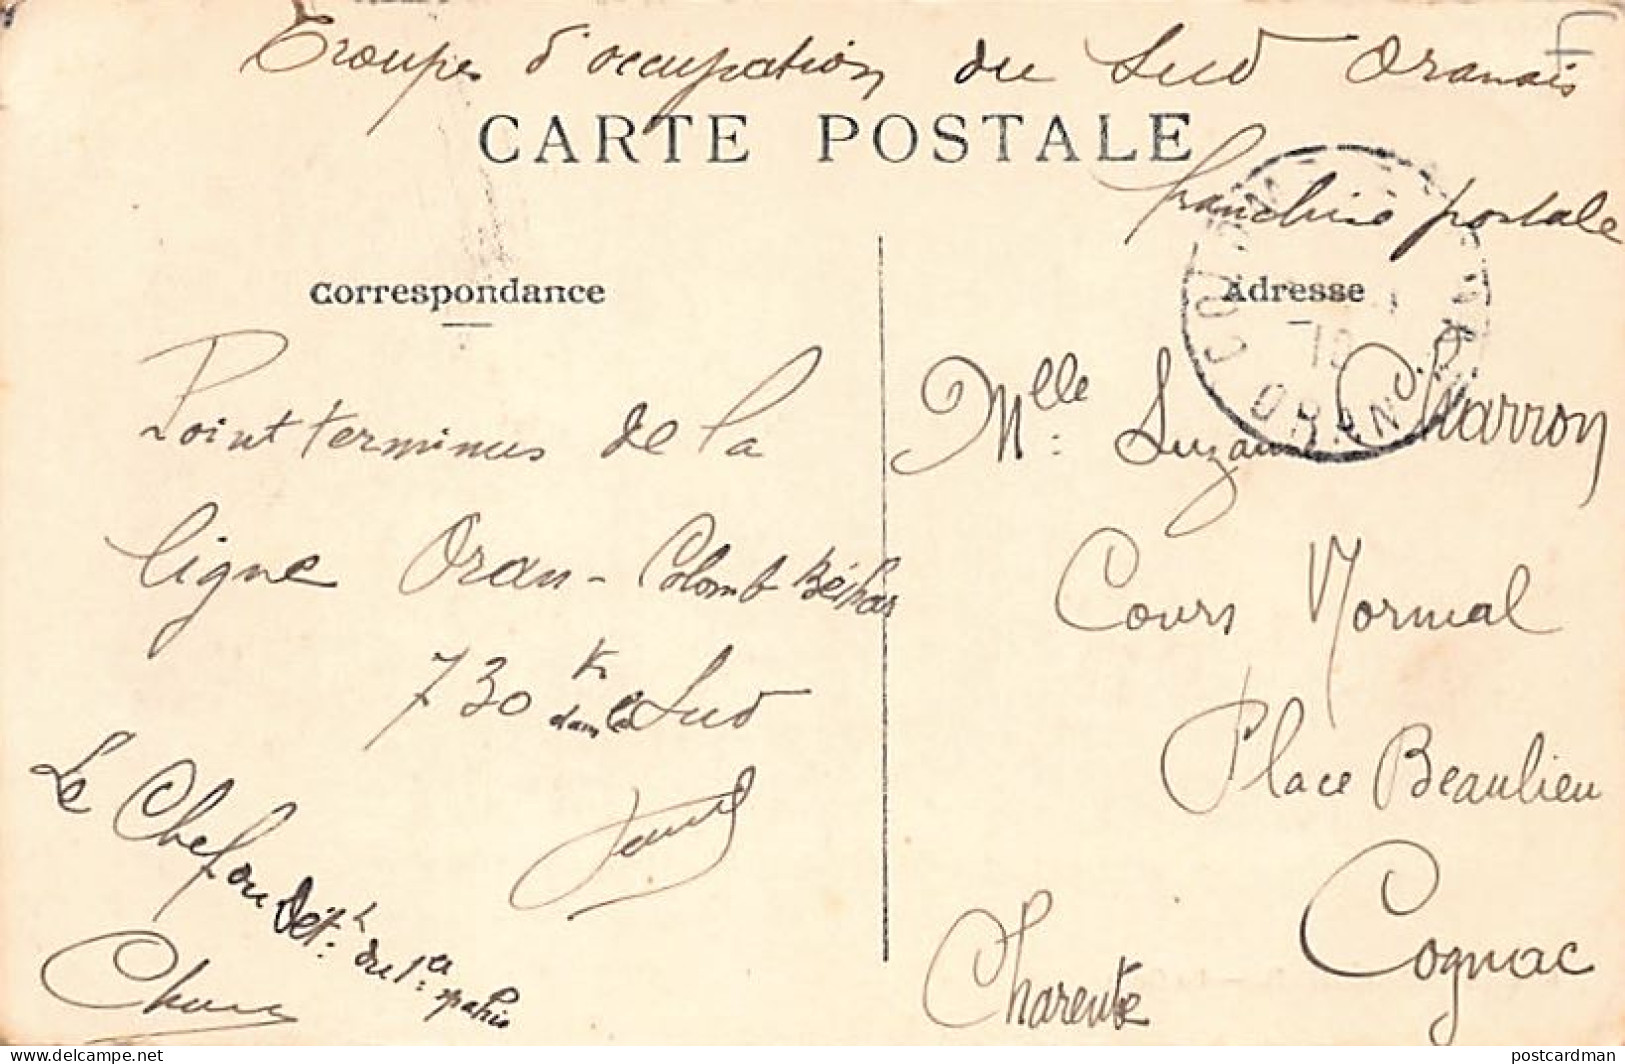 Troupes d'occupation du Sud Oranais
F
CARTE POSTALE
franchise postale
Correspondance
Adresse
Point terminus de la
ligne Oran - Colomb Béchar
730 K dans le Sud
Le Chef du Dét.t du 1.er spahis
Mlle: Suzanne Charron
Cours Normal
Place Beaulieu
Cognac
Charente
ORAN
delcampe.net
postcardman